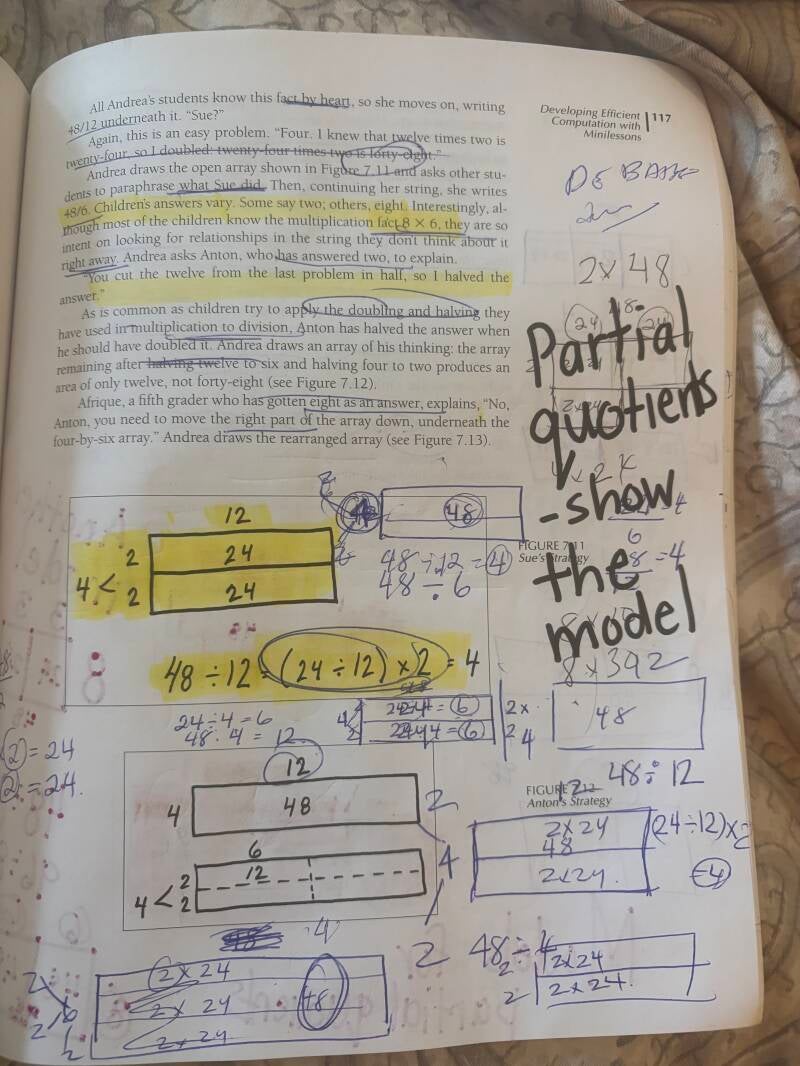 Developing Efficient
Computation with
Minilessons
117
All Andrea's students know this fact by heart, so she moves on, writing
48/12 underneath it. "Sue?"
Again, this is an easy problem. "Four. I knew that twelve times two is
twenty-four, so I doubled: twenty-four times two is forty-eight."
Andrea draws the open array shown in Figure 7.11 and asks other stu-
dents to paraphrase what Sue did. Then, continuing her string, she writes
48/6. Children's answers vary. Some say two; others, eight. Interestingly, al-
though most of the children know the multiplication fact 8 × 6, they are so
intent on looking for relationships in the string they don't think about it
right away. Andrea asks Anton, who has answered two, to explain.
"You cut the twelve from the last problem in half, so I halved the
answer."
As is common as children try to apply the doubling and halving they
have used in multiplication to division, Anton has halved the answer when
he should have doubled it. Andrea draws an array of his thinking: the array
remaining after halving twelve to six and halving four to two produces an
area of only twelve, not forty-eight (see Figure 7.12).
Afrique, a fifth grader who has gotten eight as an answer, explains, "No,
Anton, you need to move the right part of the array down, underneath the
four-by-six array." Andrea draws the rearranged array (see Figure 7.13).
2 × 48
24
Partial
quotients
-show
the
model
FIGURE 7.11
Sue's Strategy
12
2
24
4 < 2
24
48 ÷ 12 = (24 ÷ 12) × 2 = 4
48
48 ÷ 12 = 4
48 ÷ 6
8 × 392
48
24 ÷ 4 = 6
48 ÷ 4 = 12
2 = 24
2 = 24.
48 ÷ 12
FIGURE 7.12
Anton's Strategy
12
4
48
6
12
4 < 2
2
2
4
2
2 × 24
48
2 × 24.
(24 ÷ 12) × 2
= 4
48 ÷ 4
2 × 24
2 × 24.
2 × 24
2 × 24
2 × 24
48